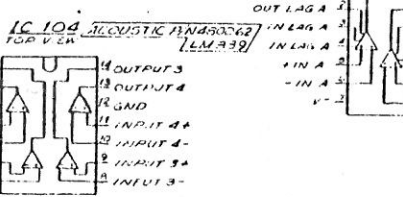 IC 104 ACOUSTIC P/N 480062
TOP VIEW LM339
14 OUTPUT 3
13 OUTPUT 4
12 GND
11 INPUT 4+
10 INPUT 4-
9 INPUT 3+
8 INPUT 3-
OUT LAG A
IN LAG A
IN LAG A
+IN A
-IN A
V-